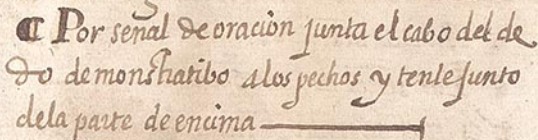 ¶ Por señal de oracion junta el cabo del de
do demonstratibo a los pechos y tente junto
dela parte de encima